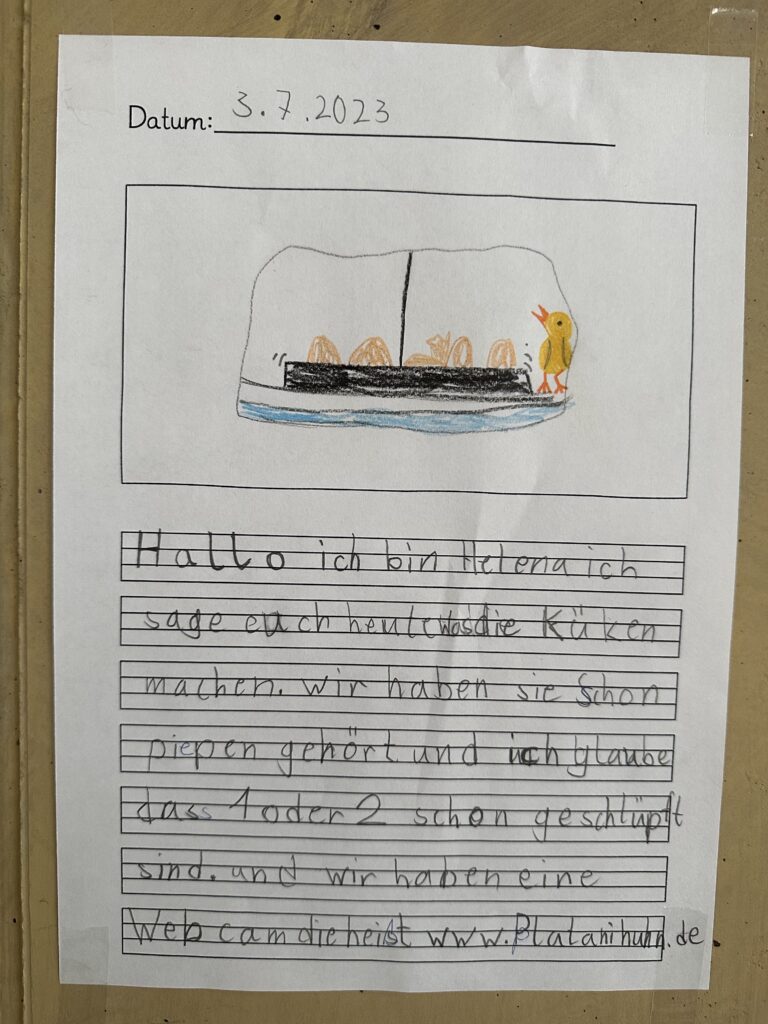 Datum: 3.7.2023
Hallo ich bin Helena ich
sage euch heute was die Küken
machen. wir haben sie schon
piepen gehört und ich glaube
dass 1 oder 2 schon geschlüpft
sind. und wir haben eine
Webcam die heißt www.Platanihuhn.de